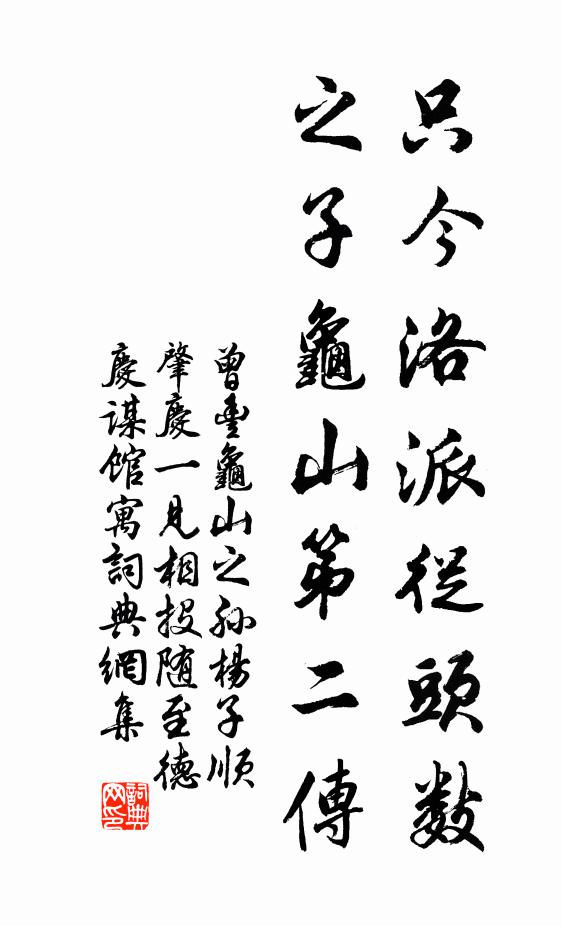 只今洛派從頭數
之子龜山第二傳
曾豊龜山之孫楊子順
肇慶一見相投随至德
慶謀館寓詞典網集
詞典
网印